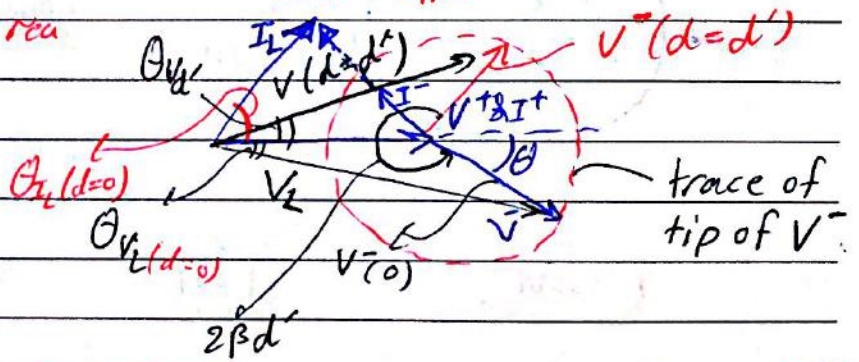 I_L
V^-(d=d')
θ_Vd'
V(d=d')
I^-
V^+ & I^+
θ_{I_L}(d=0)
θ
V_L
V^-
trace of
tip of V^-
θ_{V_L}(d=0)
V^-(0)
2βd'